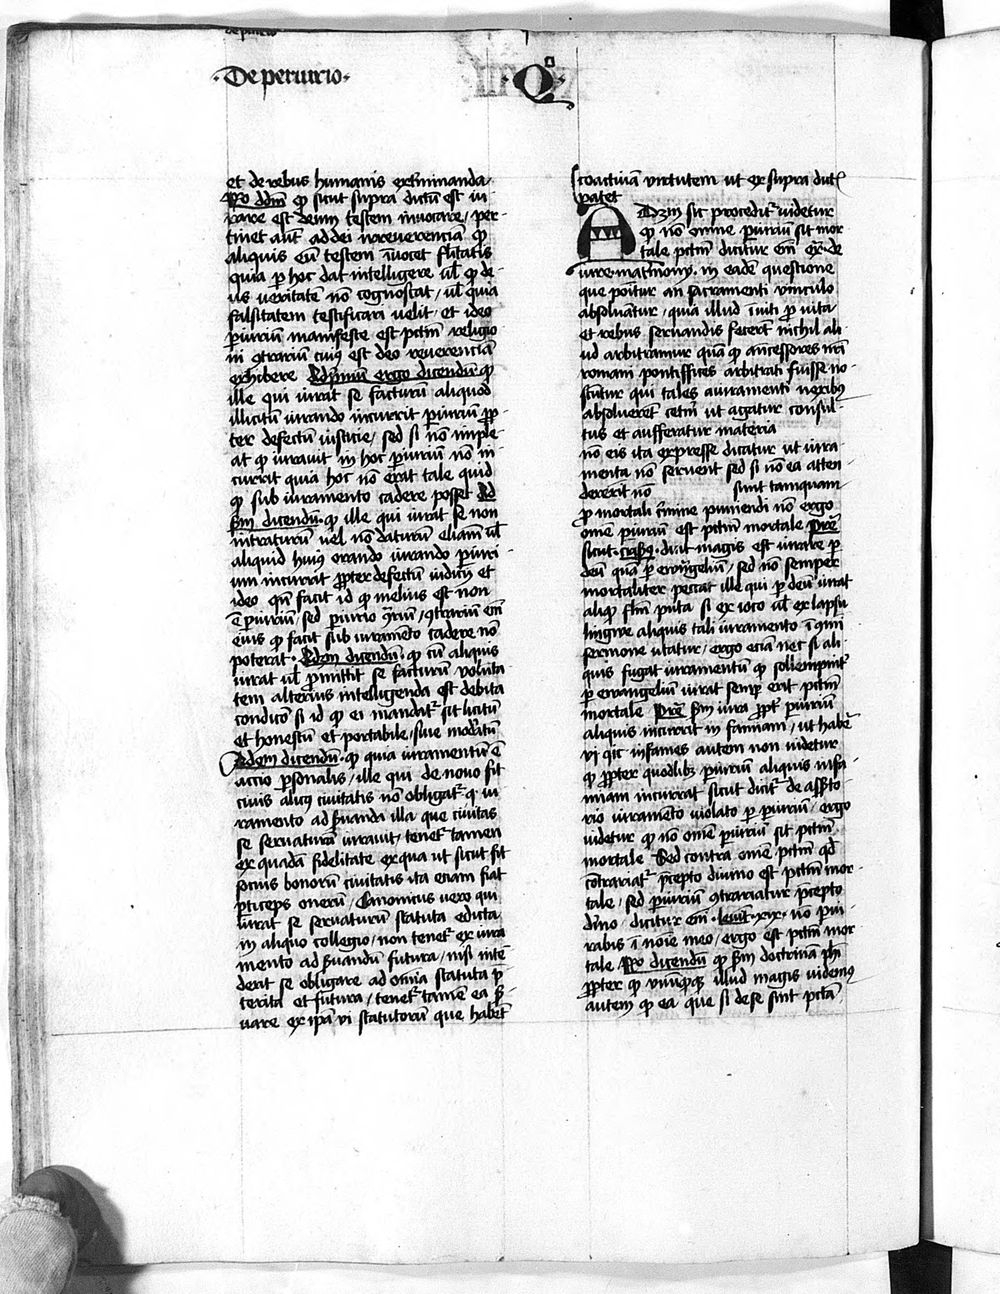 de periurio
·De periurio·
Qo
et de rebus humanis exterminanda·
Ro ddm qp sicut supra dictu est iu
rare est deum testem inuocare/ per-
tinet aut ad dei irreuerencia qp
aliquis eu testem inuocet flitatis
quia p hoc dat intelligere ul qp de-
us veritate no cognoscat/ ul quia
falsitatem testificari uelit/ et ideo
piuriu manifeste est pctm religio
ni 9trariu cuius est deo reuerencia
exhibere Ad pmu ergo dicendu qp
ille qui iurat se facturu aliquod
illicitu iurando incurrit piuriu pp-
ter defectu iusticie/ sed si no imple-
at qp iurauit in hoc piuriu no in
currit quia hoc no erat tale quid
qp sub iuramento cadere posset Ad
sm dicendu· qp ille qui iurat se non
intraturu uel no daturu eliam ul
aliquid huius orando iurando piuri-
um incurrit ppter defectu iudicij et
ideo qn facit id qp melius est non
e piuriu/ sed piurio 9riu/ 9trariu em
eius qp facit sub iurameto cadere no
poterat· Ad 3m dicendu· qp cu aliquis
iurat ul pmittit se facturu volunta
tem alterius intelligenda est debita
condico si id qp ei mandatr sit licitu
et honestu et portabile/ siue modratu
Ad 4m dicendu· qp quia iuramentu e
accio psonalis/ ille qui de nouo fit
ciuis alicuius ciuitatis no obligatr q iu
ramento ad suanda illa que ciuitas
se seruatura iurauit/ tenetr tamen
ex quada fidelitate ex qua ut sicut sit
socius bonoru ciuitatis ita etiam fiat
pticeps oneru/ Canonicus uero qui
iurat se seruaturu statuta edicta
in aliquo collegio/ non tenetr ex iura
mento ad suandu futura/ nisi inte
derit se obligare ad omia statuta p
terita et futura/ tenetr tame ea s-
uare ex ipa vi statutoru que habet
coactiua virtutem ut ex supra dict
patet
Ad 3m sic proceditr uidetur
qp no omne piuriu sit mor
tale pctm dicitur em ex· de
iure matmony· in eade questione
que poitur an sacramenti vinculo
absoluatur/ quia illud iuiti p uita
et rebus seruandis fecert nichil ali
ud arbitramur qua qp ancessores nri
romani pontifices arbitrati fuisse no-
scutur qui tales a iuramenti nexibus
absolueret cetm ut agatur consul-
tus et aufferatur materia
no eis ita expresse dicatur ut iura-
menta no seruent sed si no ea atten-
dererit no sunt tamquam
p mortali crimine puniendi no ergo
ome piuriu est pctm mortale Pre
sicut crisus· dicit magis est iurare p
deu qua p ewangeliu/ sed no semper
mortaliter peccat ille qui p deu iurat
aliqp flm puta si ex ioco ul ex lapsu
lingue aliquis tali iuramento i 9mi
sermone utatur/ ergo ecia nec si ali-
quis fugat iuramentu qp sollempnit
p ewangeliu iurat semp erit pctm
mortale Pre sm iura ppt piuriu
aliquis incurrit in famiam/ ut habet
vi qic infames autem non uidetur
qp ppter quodlibz piuriu aliquis infa
miam incurrat sicut dicit de asserto
rio iurameto violato p piuriu/ ergo
uidetur qp no ome piuriu sit pctm
mortale Sed contra ome pctm qd
contrariatr pcepto diuino est pctm mor-
tale/ sed piuriu 9trariatur pcepto
diuo/ dicitur em leuit xix· no piu-
rabis i noie meo/ ergo est pctm mor
tale Ro dicendu qp sm doctrina phi
ppter qp vnuqqz illud magis uidemus
autem qp ea que si de se sint pcta